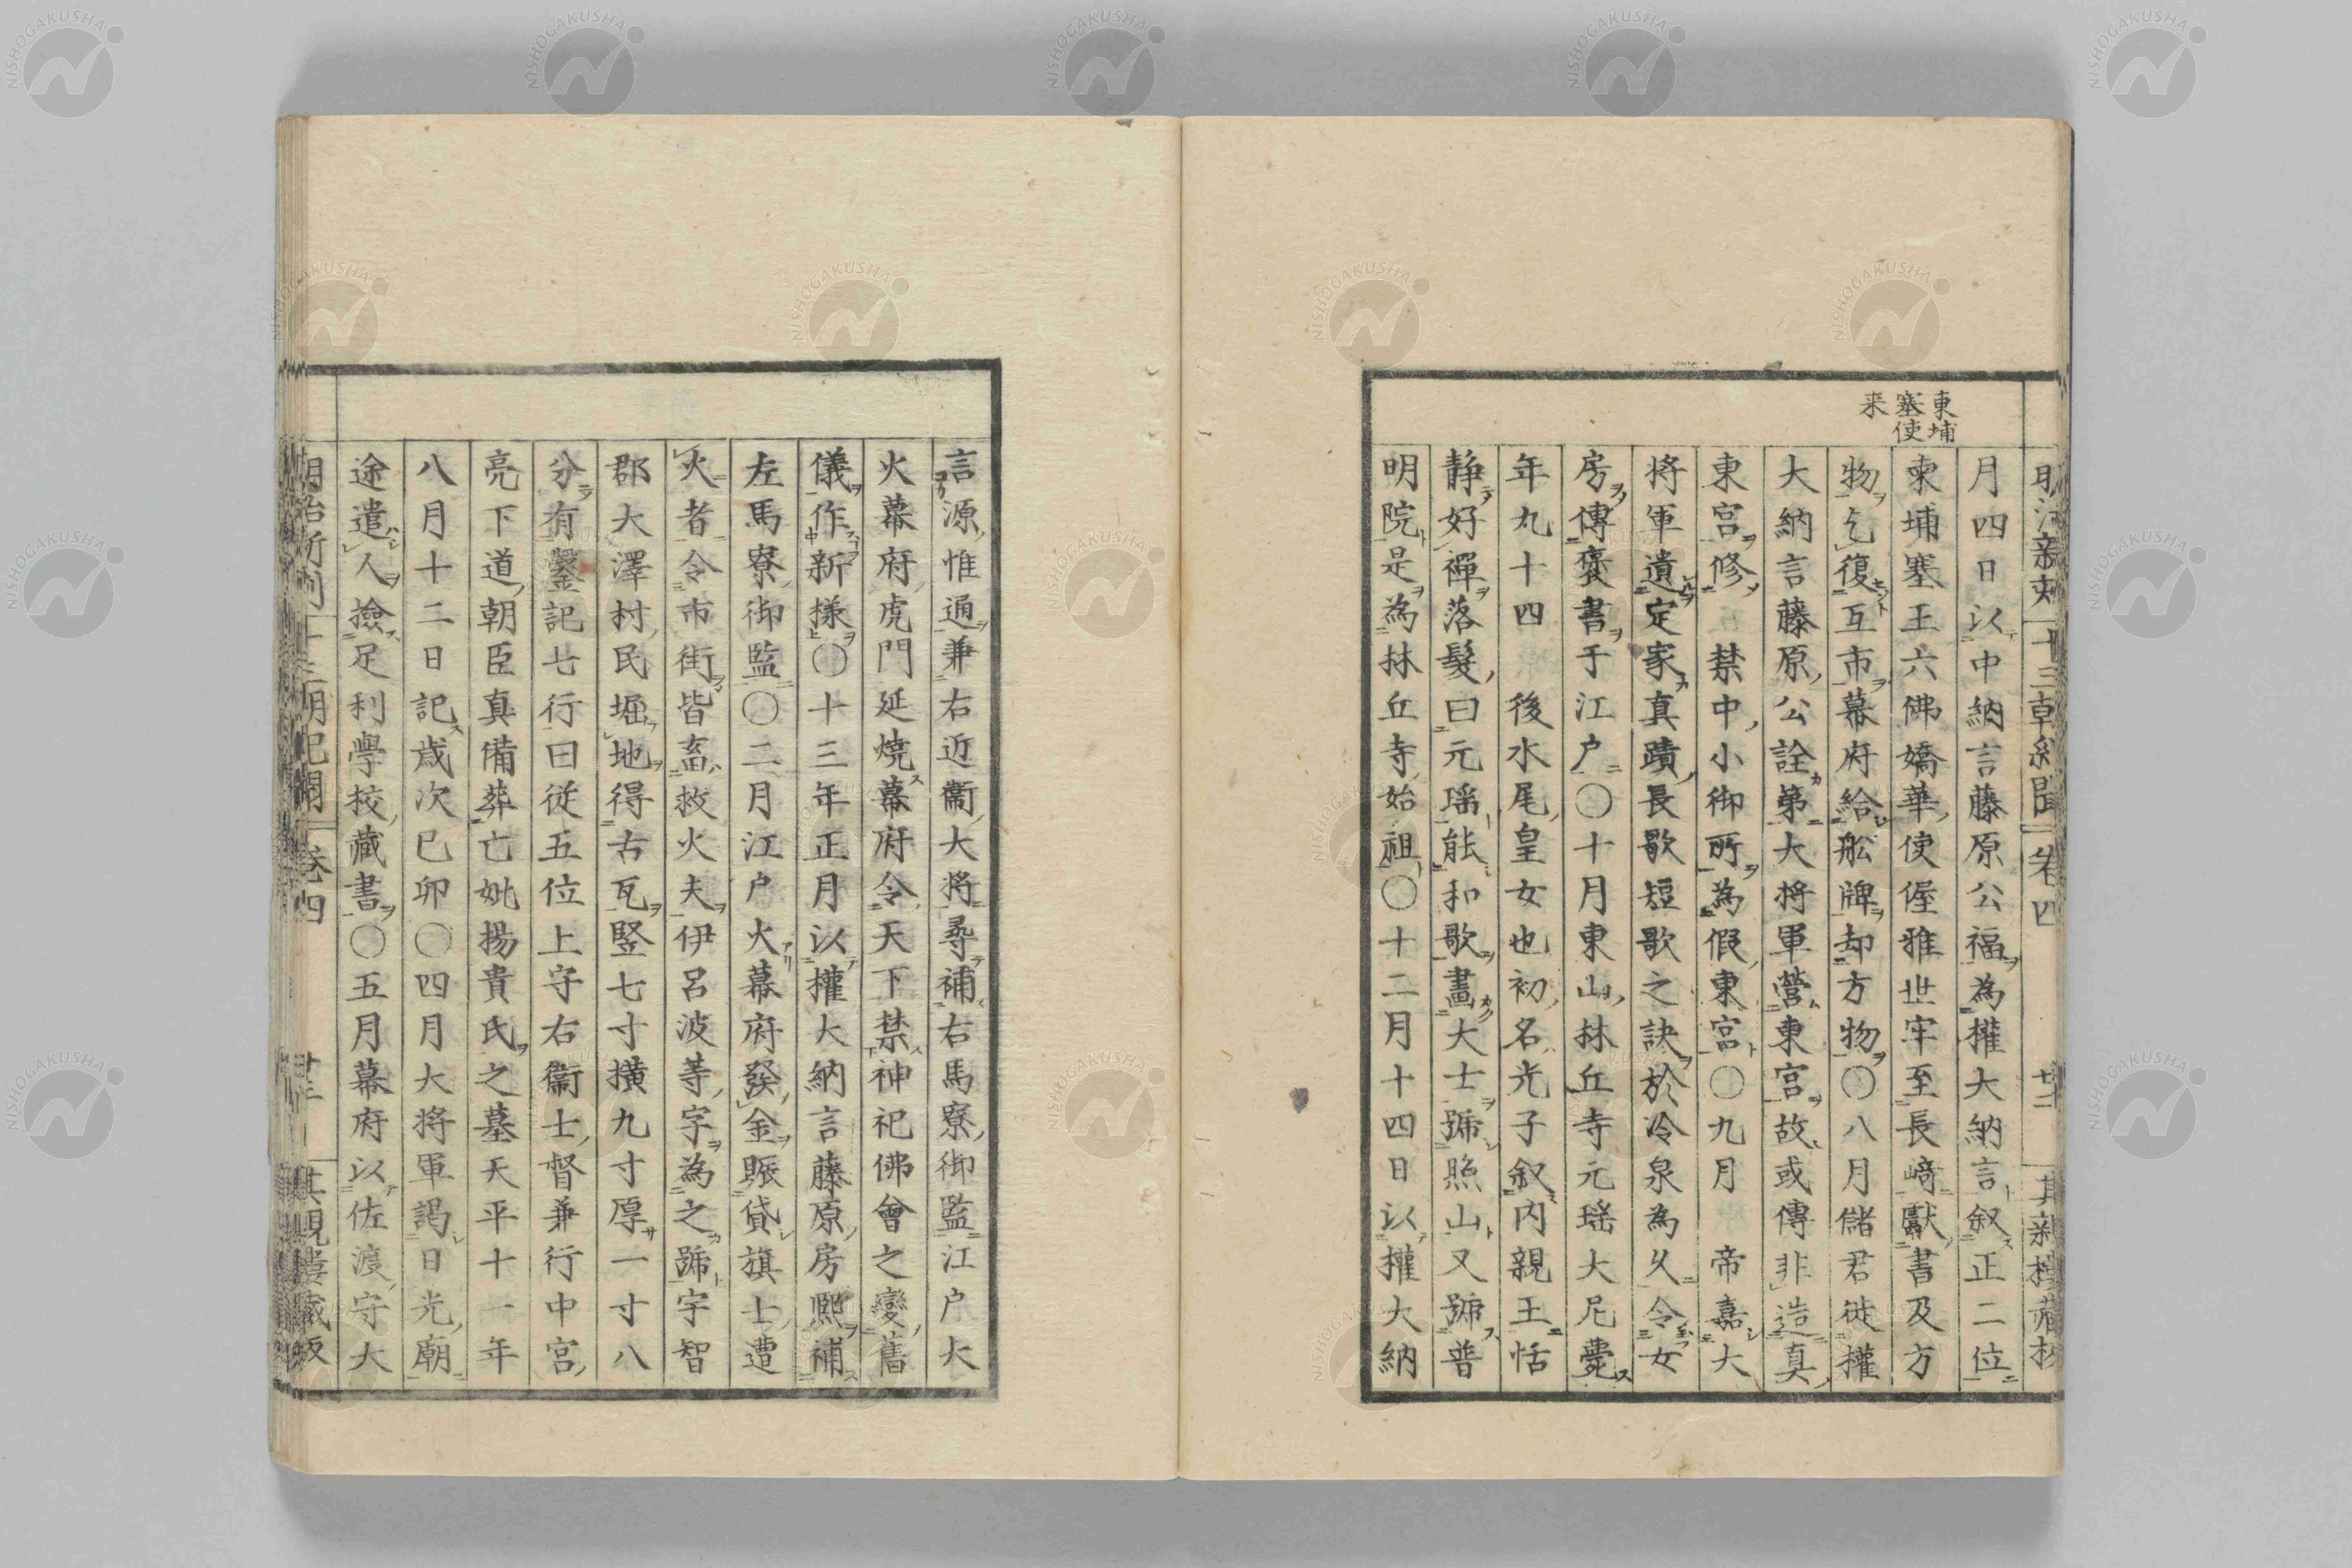 東埔
塞使
来
月四日以中納言藤原公福為權大納言叙正二位
柬埔塞王六佛嬌華使偓雅世牢至長﨑獻書及方
物乞復互市幕府給舩牌却方物〇八月儲君徙權
大納言藤原公詮第大将軍營東宮故或傳非造真
東宮修禁中小御所為假東宮〇九月帝嘉大
将軍遺定家真蹟長歌短歌之訣於冷泉為久令女
房傳襃書于江户〇十月東山林丘寺元瑶大尼薨
年九十四後水尾皇女也初名光子叙内親王恬
静好禪落髮曰元瑶能和歌畫大士號照山又號普
明院是為林丘寺始祖〇十二月十四日以權大納
言源惟通兼右近衞大将尋補右馬寮御監江户大
火幕府虎門延燒幕府令天下禁神祀佛會之變舊
儀作新様〇十三年正月以權大納言藤原房熙補
左馬寮御監〇二月江户火幕府發金賑貸旗士遭
火者令市街皆畜救火夫伊呂波等字為之號宇智
郡大澤村民堀地得古瓦竪七寸横九寸厚一寸八
分有鑿記七行曰従五位上守右衞士督兼行中宮
亮下道朝臣真備葬亡妣揚貴氏之墓天平十一年
八月十二日記歳次己卯〇四月大将軍謁日光廟
途遣人撿足利學挍藏書〇五月幕府以佐渡守大
明治新刻　十三朝紀聞　卷四　廿三　其親樓藏板